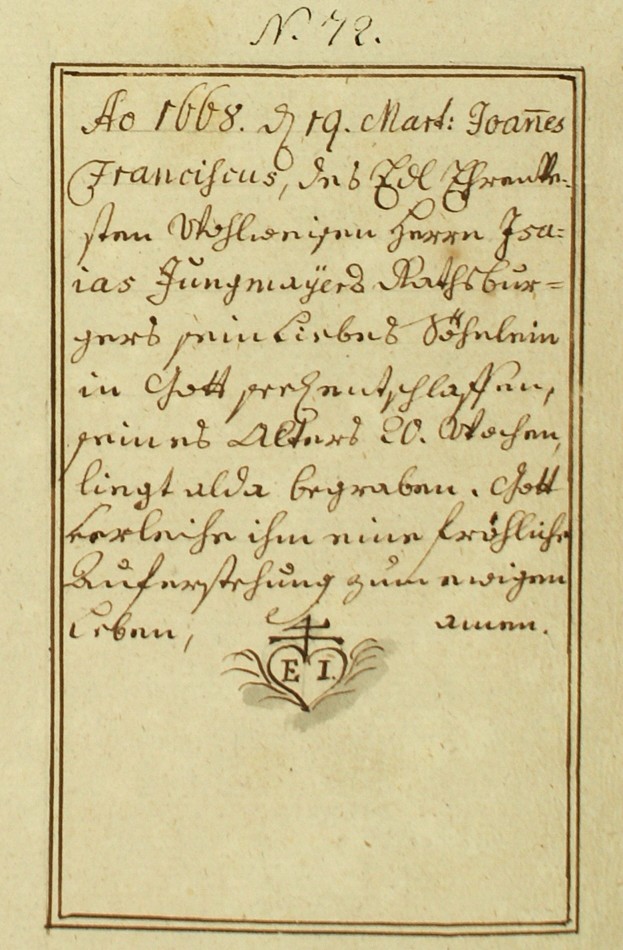 N. 72.
Ao 1668. d 19. Mart: Joan̄es
Franciscus, des Edl Ehrenve-
sten Wohlweisen Herrn Isa=
ias Jungmaÿers Rathsbur=
gers sein Liebes Söhnlein
in Gott seel. entschlaffen,
seines Alters 20. Wochen,
liegt alda begraben. Gott
verleihe ihm eine fröhliche
Auferstehung zum ewigen
Leben, amen.
E I.